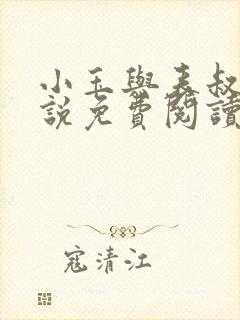 小玉與表叔
說免費閱讀
寇清江